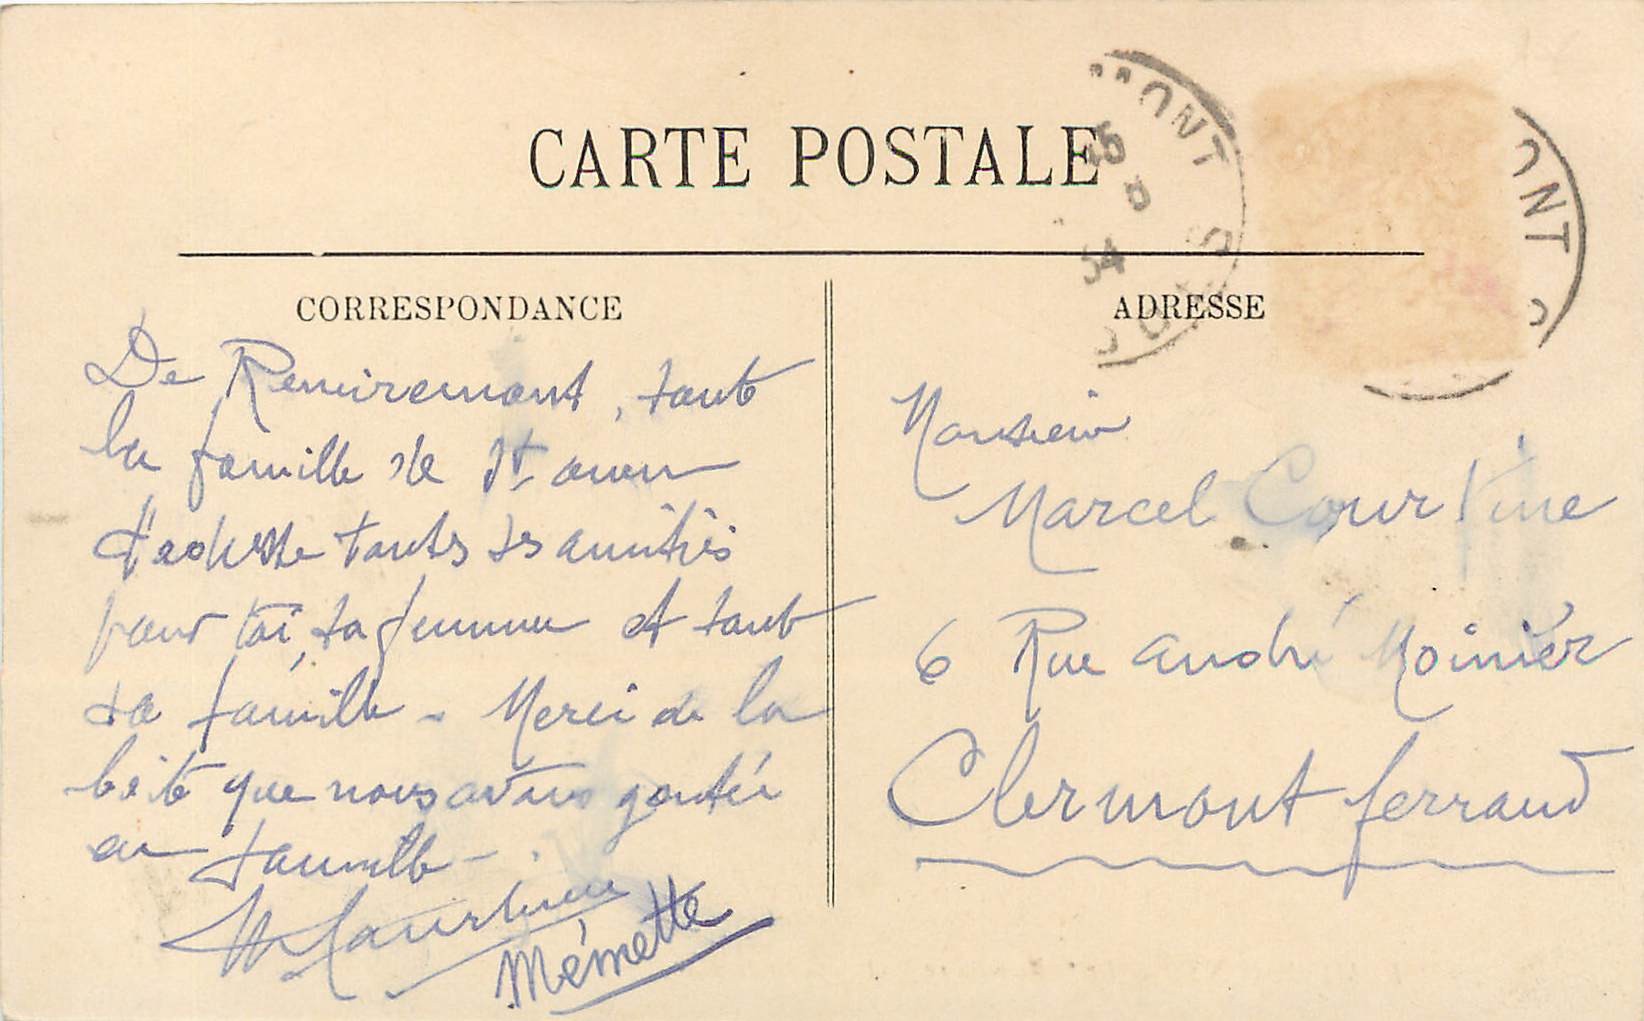 CARTE POSTALE
MONT
15
54
VOSGES
ONT
CORRESPONDANCE
ADRESSE
De Remiremont, toute
la famille de St
t'adresse toutes ses amitiés
pour toi, ta femme et toute
ta famille - Merci de la
boite que nous avons goutée
en famille -
Mémette
Monsieur
Marcel Courtine
6 Rue André Moinier
Clermont ferrand